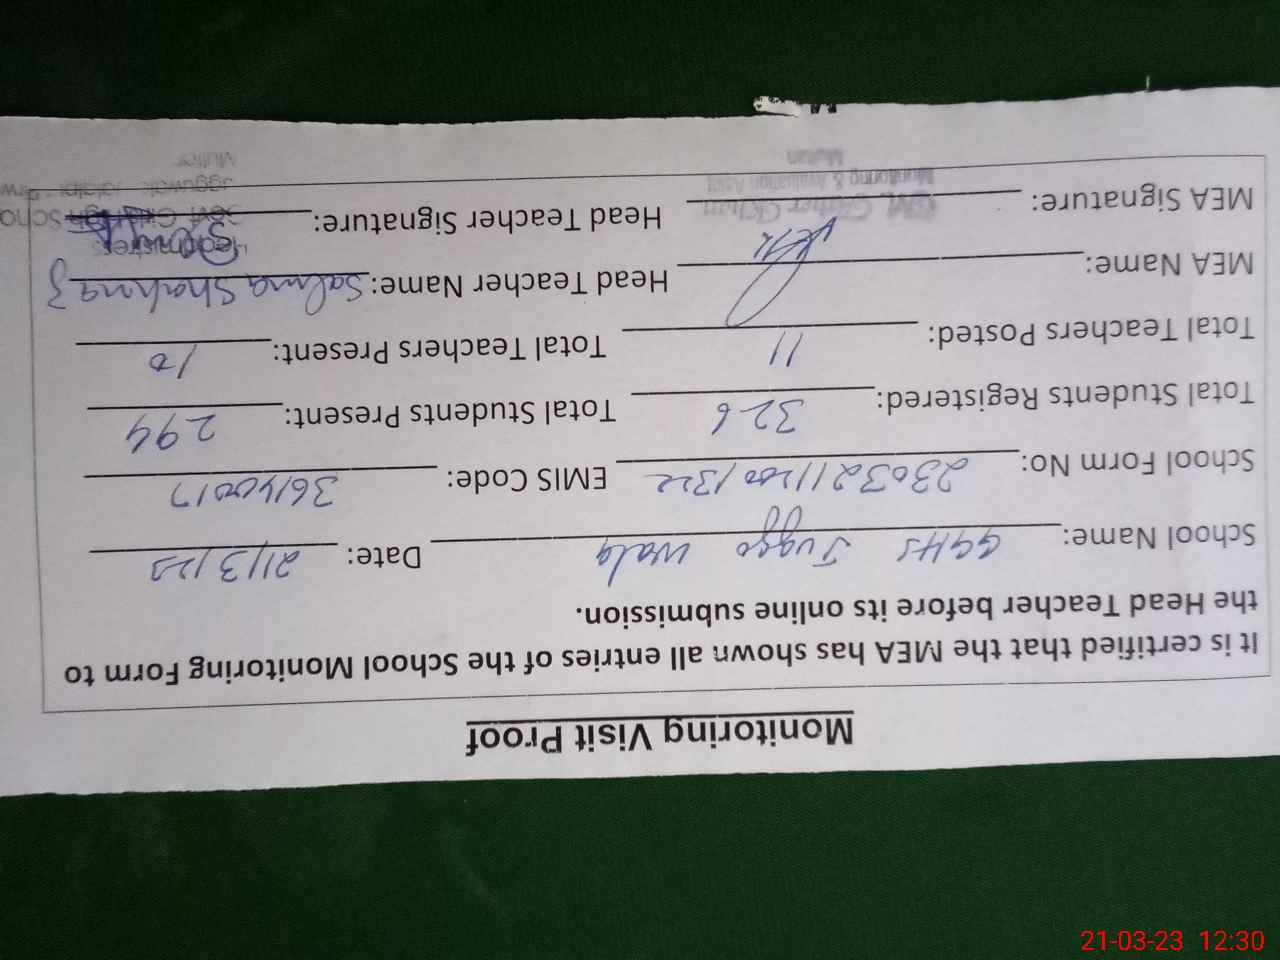 Monitoring Visit Proof
It is certified that the MEA has shown all entries of the School Monitoring Form to
the Head Teacher before its online submission.
School Name: GGHS Juggo wala Date: 21/3/23
School Form No: EMIS Code: 36140017
Total Students Registered: 326 Total Students Present: 294
Total Teachers Posted: 11 Total Teachers Present: 10
MEA Name: Head Teacher Name: Salma Shahnaz
MEA Signature: Head Teacher Signature:
Monitoring & Evaluation
Multan
21-03-23 12:30